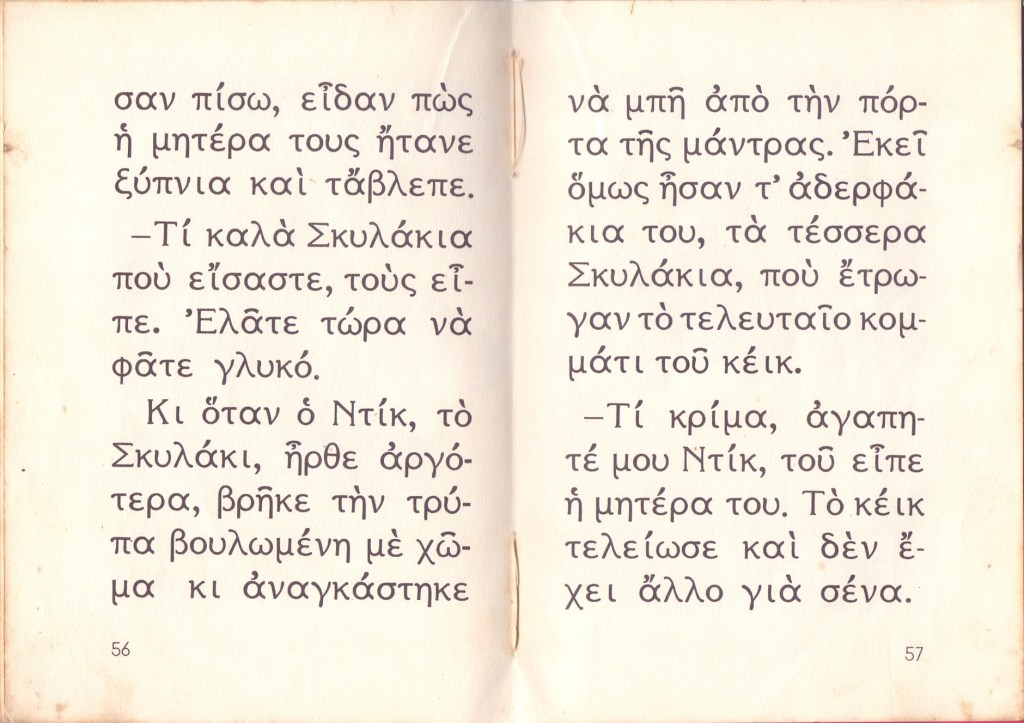 σαν πίσω, εἶδαν πὼς
ἡ μητέρα τους ἤτανε
ξύπνια καὶ τἄβλεπε.
–Τί καλὰ Σκυλάκια
ποὺ εἴσαστε, τοὺς εἶ-
πε. Ἐλᾶτε τώρα νὰ
φᾶτε γλυκό.
Κι ὅταν ὁ Ντίκ, τὸ
Σκυλάκι, ἦρθε ἀργό-
τερα, βρῆκε τὴν τρύ-
πα βουλωμένη μὲ χῶ-
μα κι ἀναγκάστηκε
56
νὰ μπῆ ἀπὸ τὴν πόρ-
τα τῆς μάντρας. Ἐκεῖ
ὅμως ἦσαν τ’ ἀδερφά-
κια του, τὰ τέσσερα
Σκυλάκια, ποὺ ἔτρω-
γαν τὸ τελευταῖο κομ-
μάτι τοῦ κέικ.
–Τί κρίμα, ἀγαπη-
τέ μου Ντίκ, τοῦ εἶπε
ἡ μητέρα του. Τὸ κέικ
τελείωσε καὶ δὲν ἔ-
χει ἄλλο γιὰ σένα.
57